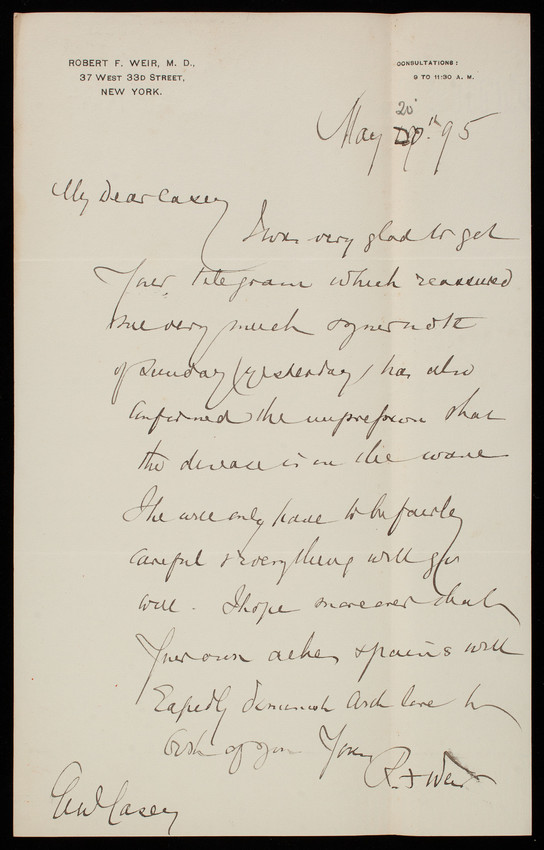 ROBERT F. WEIR, M. D.,
37 WEST 33D STREET,
NEW YORK.
CONSULTATIONS:
9 TO 11:30 A. M.
May 20th 95
My Dear Casey
I was very glad to get
your telegram which reassured
me very much & your note
of Sunday (yesterday) has also
confirmed the impression that
the disease is on the wane
She will only have to be fairly
careful & everything will go
well. I hope moreover that
your own aches & pains will
rapidly diminish With love to
both of you Yours
R. F. Weir
Genl Casey